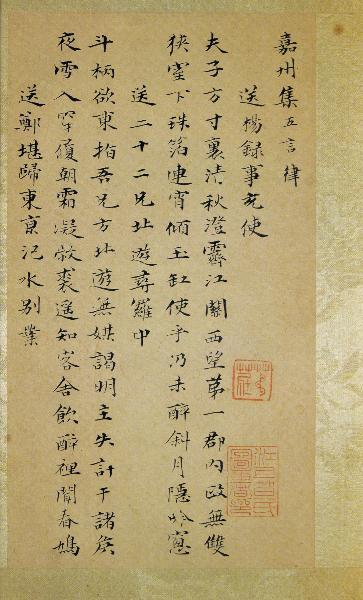 嘉州集五言律
送楊録事充使
夫子方寸裏清秋澄霽江關西望第一郡内政無雙
狹室下珠箔連宵傾玉缸使乎乃未醉斜月隱吟窻
送二十二兄北遊尋羅中
斗柄欲東指吾兄方北遊無媒謁明主失計干諸侯
夜雪入穿履朝霜凝敝裘遥知客舍飲醉裡聞春鳩
送鄭堪歸東京汜水別業